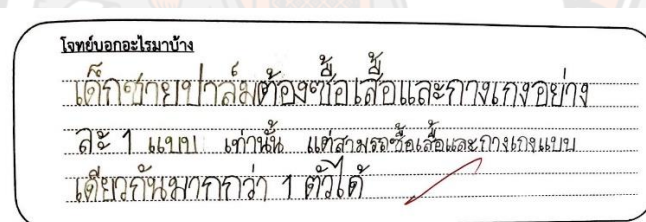 โจทย์บอกอะไรมาบ้าง
เด็กชายปาล์มต้องซื้อเสื้อและกางเกงอย่าง
ละ 1 แบบ เท่านั้น แต่สามรถซื้อเสื้อและกางเกงแบบ
เดียวกันมากกว่า 1 ตัวได้